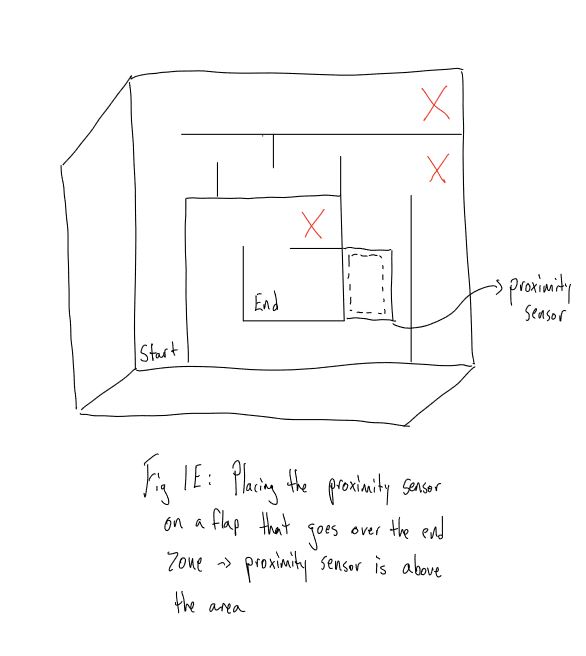 X
X
X
End
proximity
sensor
Start
Fig 1E: Placing the proximity sensor
on a flap that goes over the end
zone → proximity sensor is above
the area